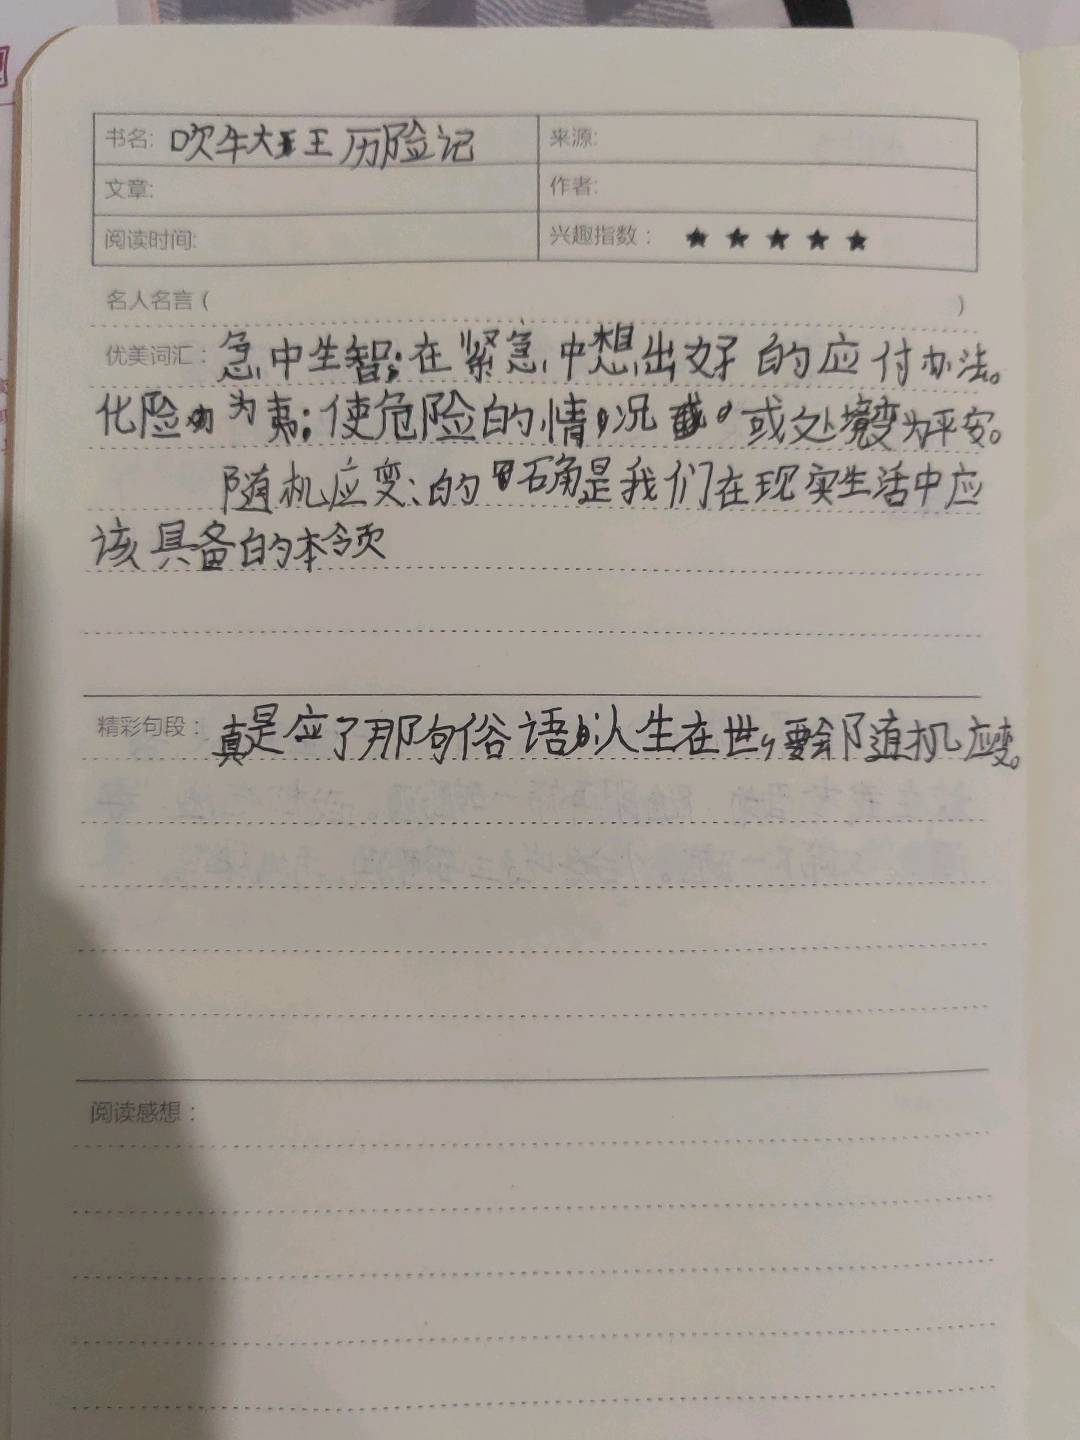 书名: 吹牛大王历险记 来源:
文章: 作者:
阅读时间: 兴趣指数： ★ ★ ★ ★ ★
名人名言 ( )
优美词汇： 急中生智：在紧急中想出好的应付办法。
化险为夷：使危险的情况或处境变为平安。
随机应变：的确是我们在现实生活中应
该具备的本领
精彩句段： 真是应了那句俗语：人生在世，要会随机应变。
阅读感想：